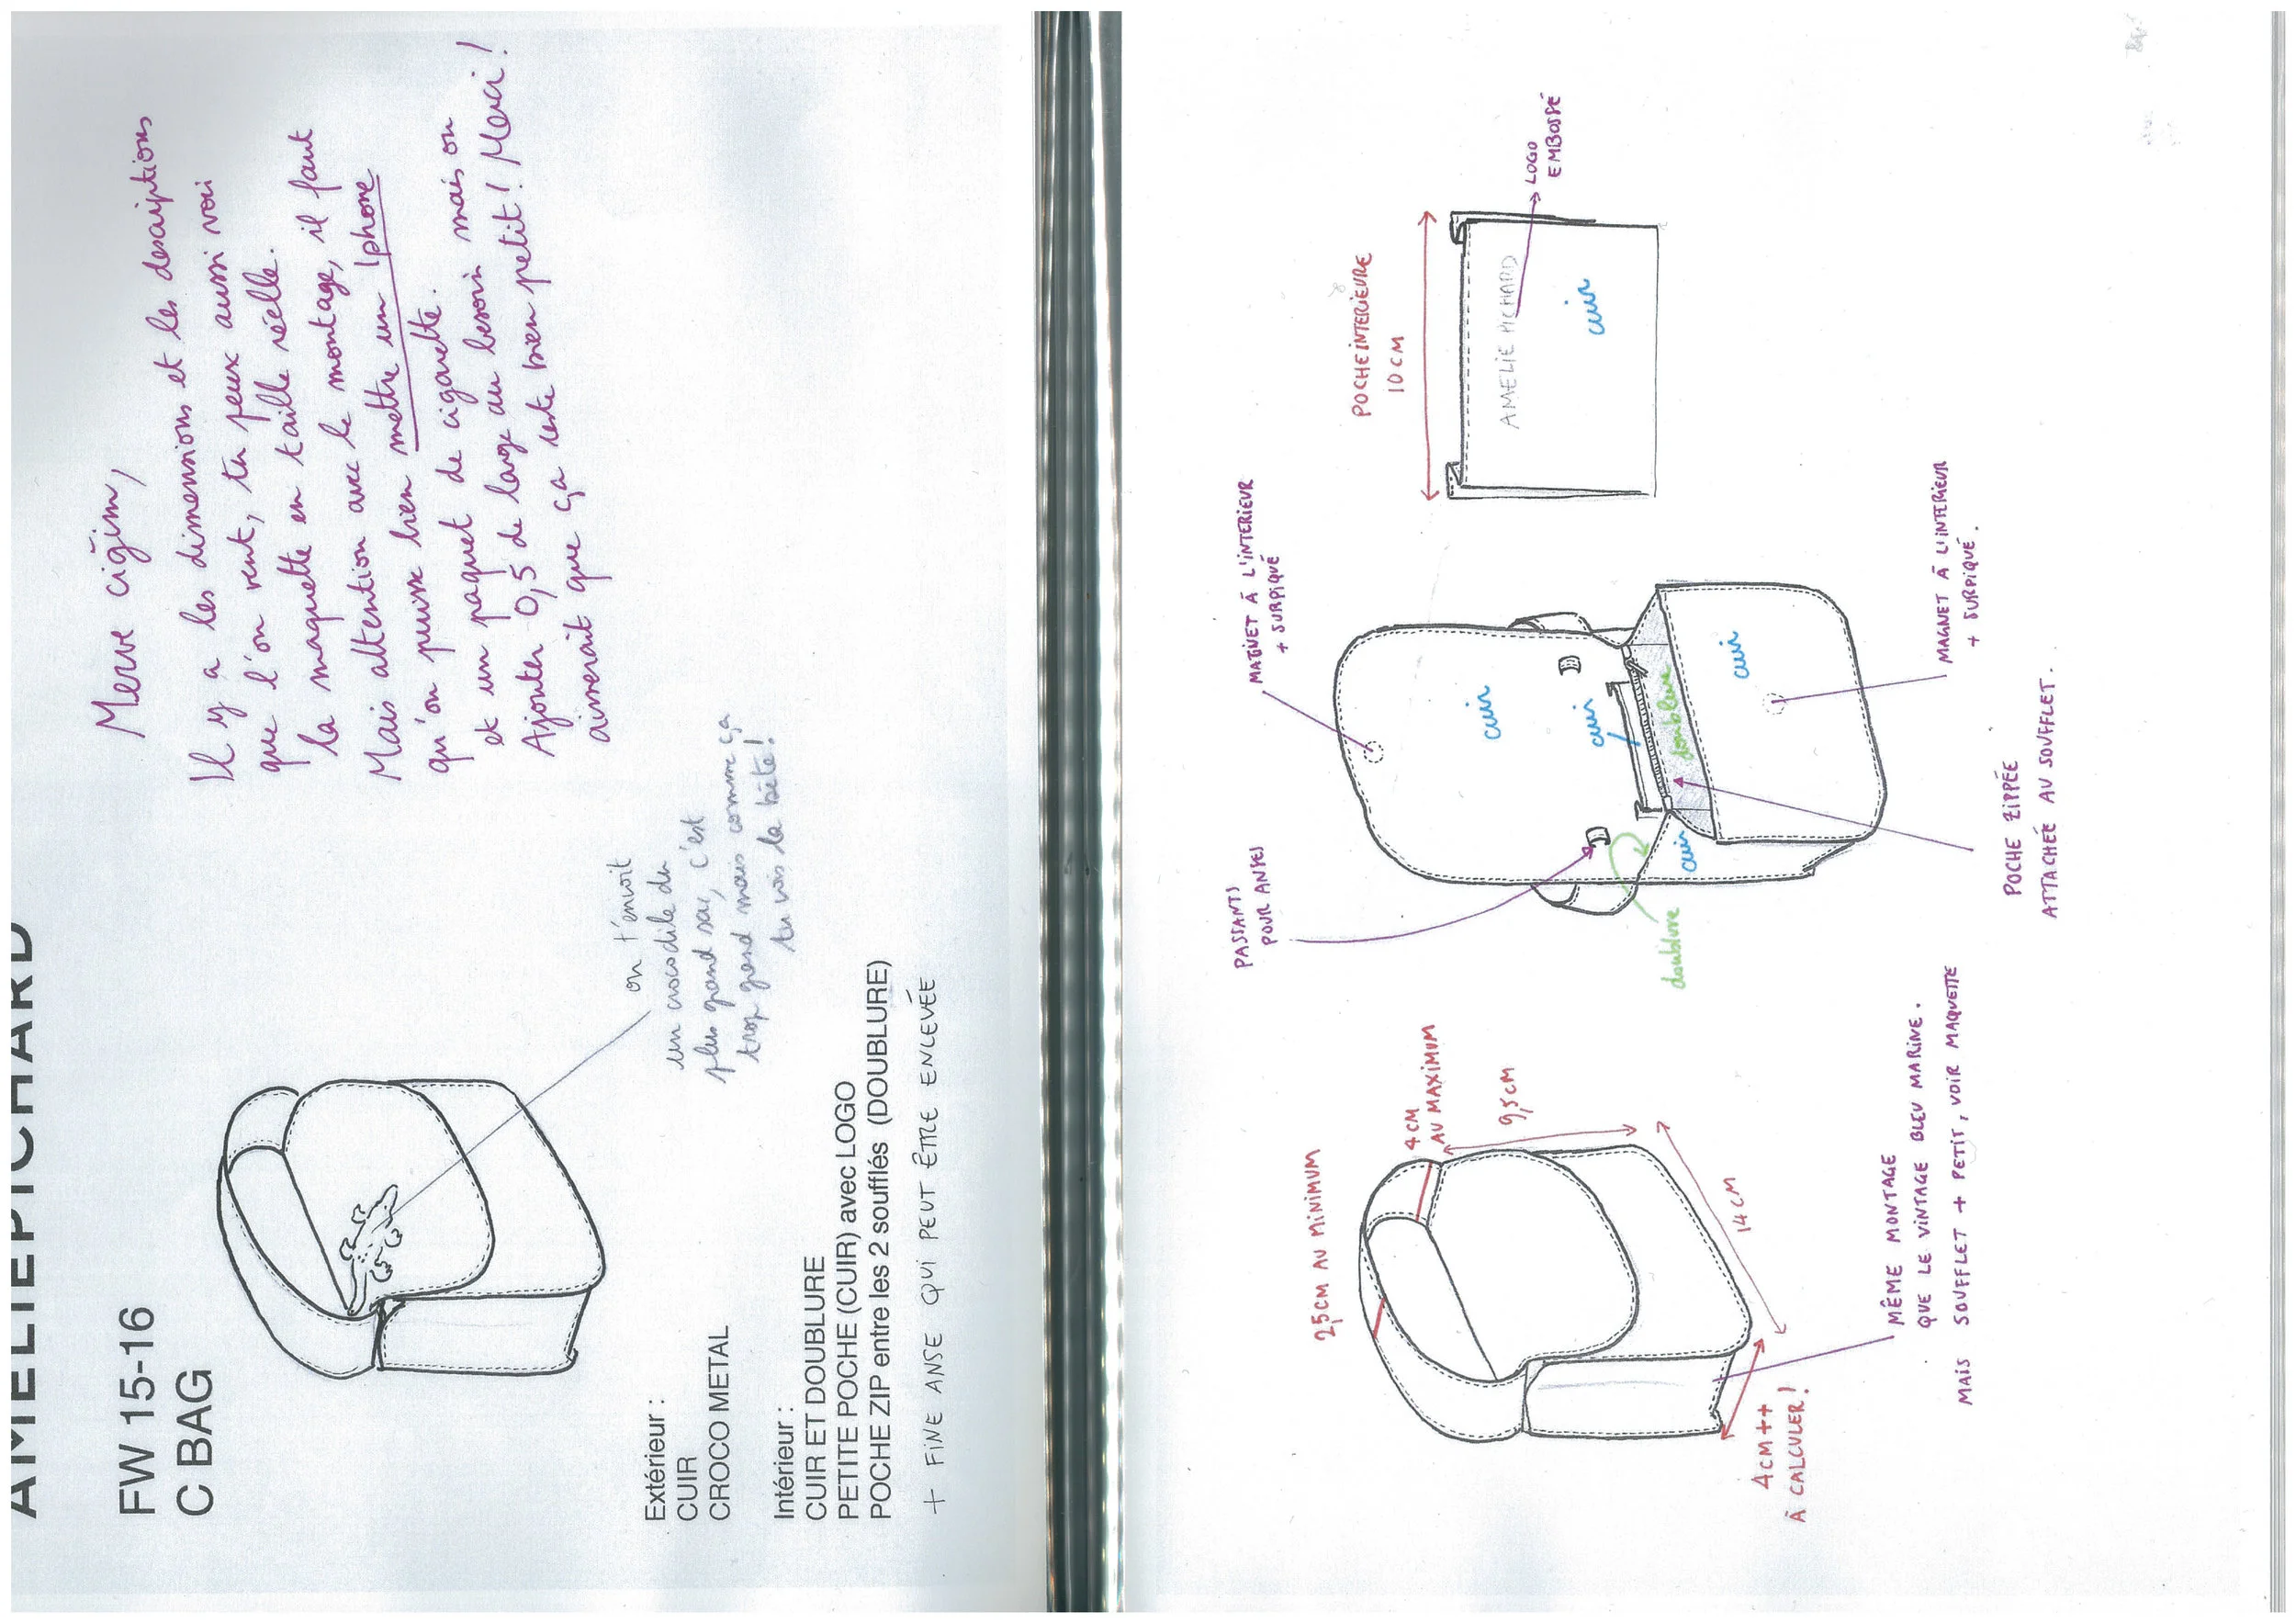 AMELIE PICHARD
FW 15-16
C BAG
Merve ciğim,
Il y a les dimensions et les descriptions
que l'on veut, tu peux aussi voir
la maquette en taille réelle.
Mais attention avec le montage, il faut
qu'on puisse bien mettre un Iphone
et un paquet de cigarette.
Ajouter 0,5 de large au besoin mais on
aimerait que ça reste bien petit ! Merci !
on t'envoit
un crocodile du
plus grand sac, c'est
trop grand mais comme ça
tu vois la bête !
Extérieur :
CUIR
CROCO METAL
Intérieur :
CUIR ET DOUBLURE
PETITE POCHE (CUIR) avec LOGO
POCHE ZIP entre les 2 soufflés (DOUBLURE)
+ FINE ANSE QUI PEUT ÊTRE ENLEVÉE
2,5CM AU MINIMUM
4CM
AU MAXIMUM
9,5CM
14CM
4CM++
À CALCULER !
MÊME MONTAGE
QUE LE VINTAGE BLEU MARINE.
MAIS SOUFFLET + PETIT, VOIR MAQUETTE
PASSANTS
POUR ANSES
MAGNET À L'INTERIEUR
+ SURPIQUÉ
cuir
cuir
doublure
cuir
cuir
doublure
MAGNET À L'INTERIEUR
+ SURPIQUÉ.
POCHE ZIPPÉE
ATTACHÉE AU SOUFFLET.
POCHE INTERIEURE
10CM
AMELIE PICHARD
cuir
LOGO
EMBOSSÉ